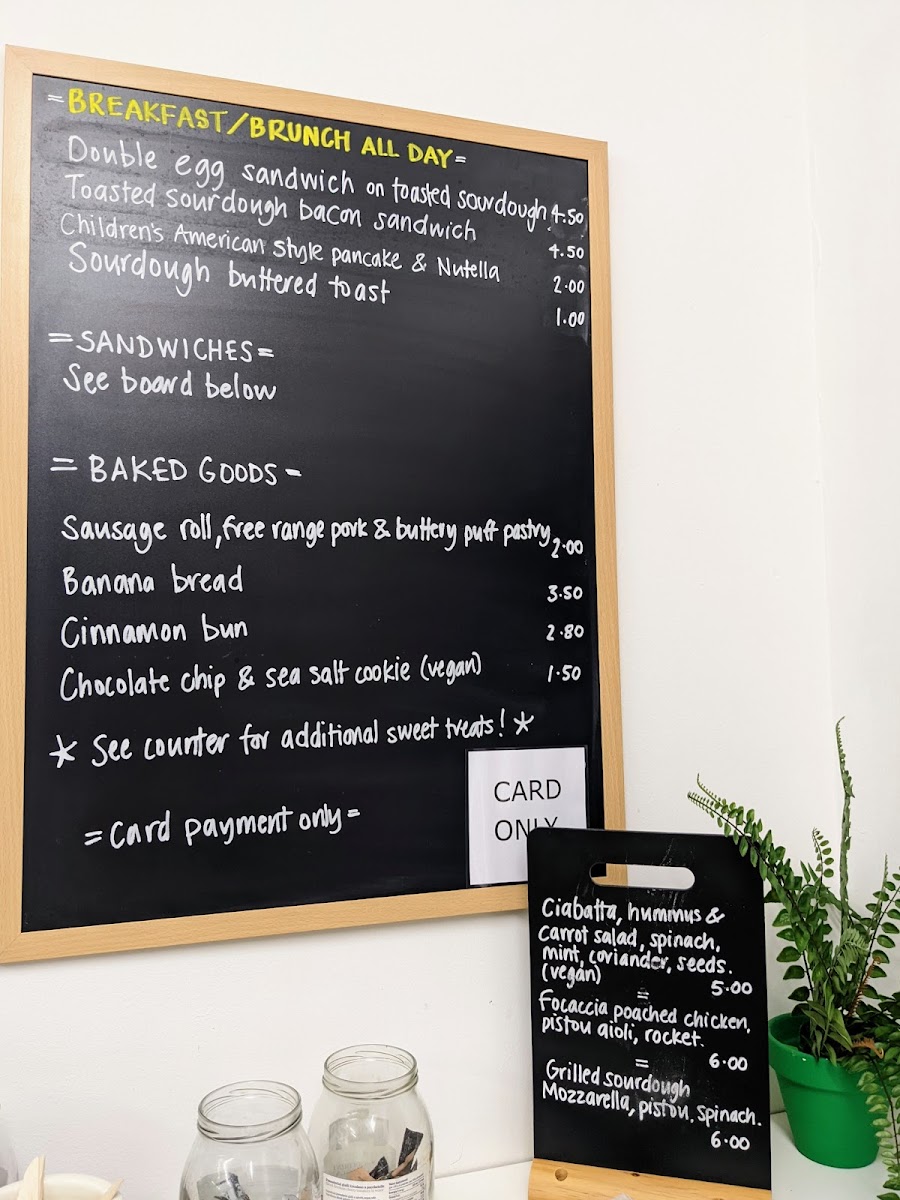 =BREAKFAST/BRUNCH ALL DAY=
Double egg sandwich on toasted sourdough 4.50
Toasted sourdough bacon sandwich 4.50
Children's American style pancake & Nutella 2.00
Sourdough buttered toast 1.00
=SANDWICHES=
See board below
= BAKED GOODS -
Sausage roll, free range pork & buttery puff pastry 2.00
Banana bread 3.50
Cinnamon bun 2.80
Chocolate chip & sea salt cookie (vegan) 1.50
* See counter for additional sweet treats! *
=Card payment only=
CARD
ONLY
Ciabatta, hummus &
Carrot salad, spinach,
mint, coriander, seeds.
(vegan) 5.00
=
Focaccia poached chicken,
pistou aioli, rocket.
6.00
=
Grilled sourdough
Mozzarella, pistou, spinach.
6.00